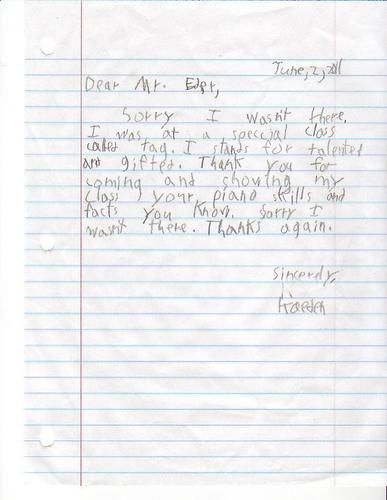 June, 2, 2011
Dear Mr. Edgr,
Sorry I wasn't there.
I was at a speccial class
called tag. I stands for talented
and gifted. Thank you for
coming and showing my
class your piano skills and
facts you know. Sorry I
wasn't there. Thanks again.
Sincerdy,
Kaeden